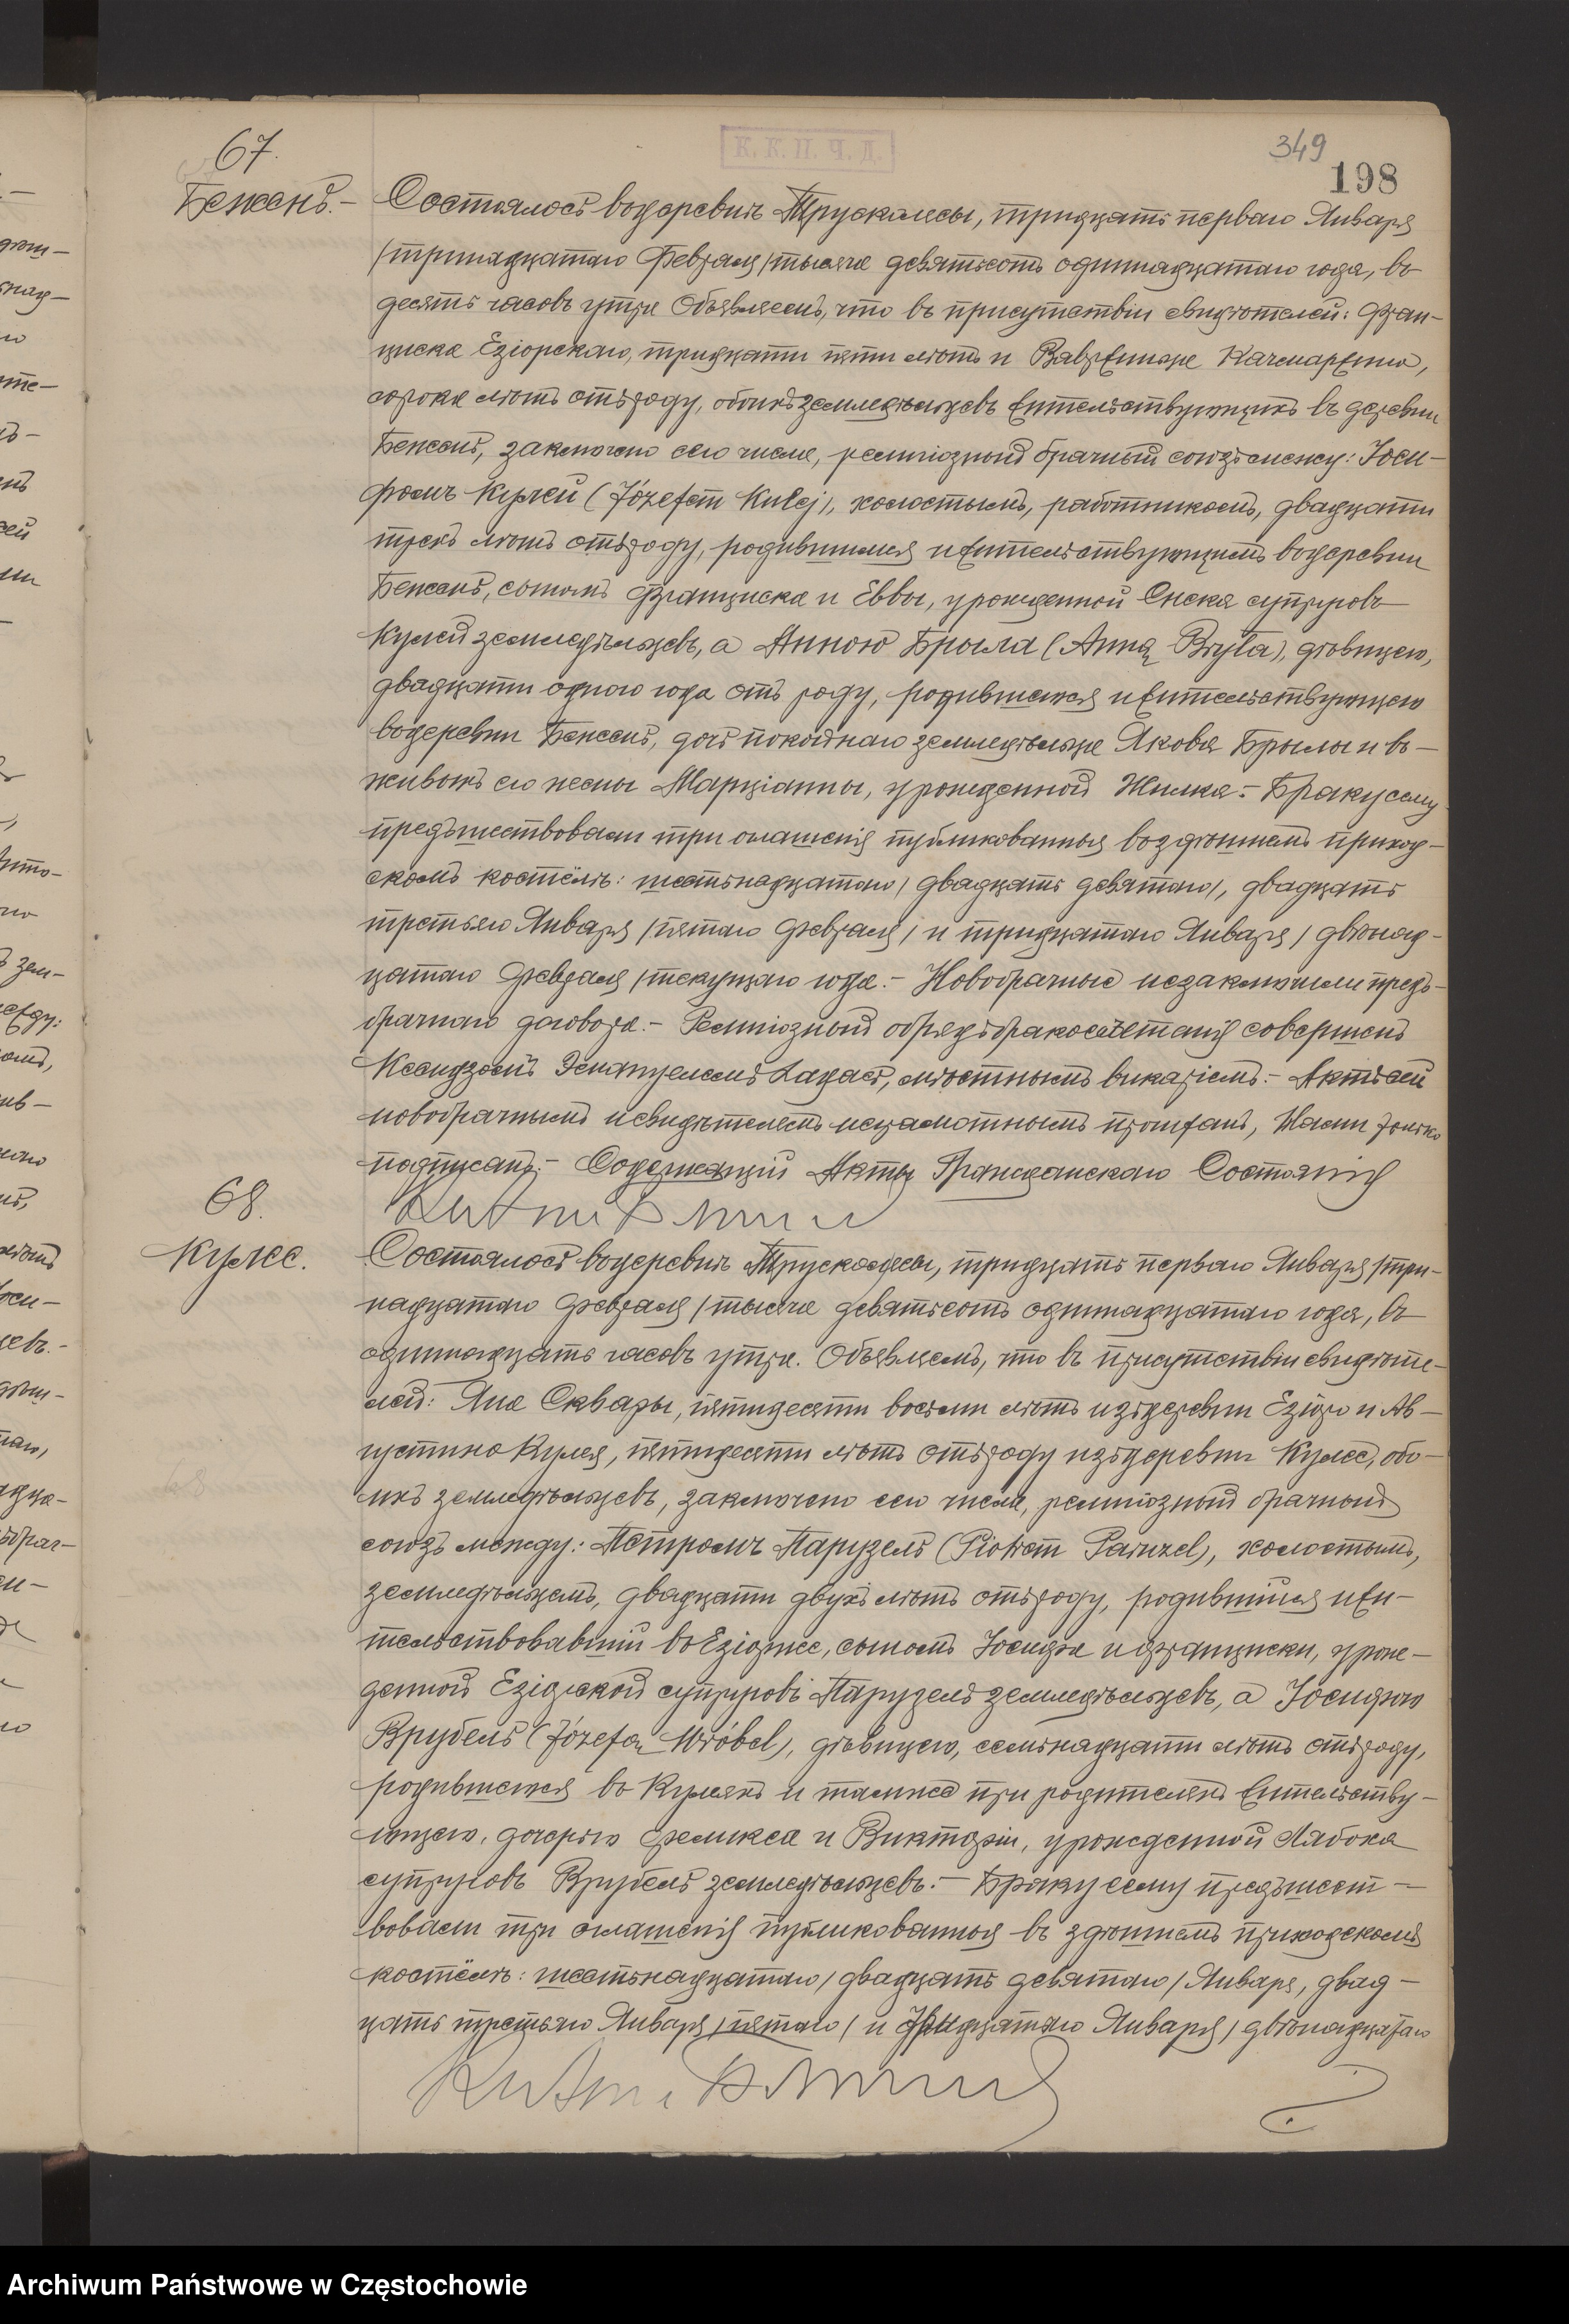 К. К. П. Ч. Д.
349
198
67.
Бежень.-
Состоялось въ деревнѣ Трусколясы, тридцать перваго Января
/тринадцатаго Февраля/ тысяча девятьсотъ одиннадцатаго года, въ
десять часовъ утра. Объявляемъ, что въ присутствіи свидѣтелей: Фран-
циска Езіорскаго, тридцати пяти лѣтъ и Вавренца Качмарека,
сорока лѣтъ отъ роду, обоихъ земледѣльцевъ жительствующихъ въ деревни
Бежень, заключено сего числа, религіозный брачный союзъ между: Іоси-
фомъ Кулей (Józefem Kulej), холостымъ, работникомъ, двадцати
трехъ лѣтъ отъ роду, родившимся и жительствующимъ въ деревни
Бежень, сыномъ Франциска и Еввы, урожденной супруговъ
Кулей земледѣльцевъ, а Анною Брыла (Anną Bryła), дѣвицею,
двадцати одного года отъ роду, родившеюся и жительствующею
въ деревни Бежень, дочь покойнаго земледѣльца Якова Брылы и въ-
живыхъ его жены Марціанны, урожденной Жилка.- Браку сему
предшествовали три оглашенія публикованныя въ здѣшнемъ приход-
скомъ костёлѣ: шестьнадцатаго /двадцать девятаго/, двадцать
третьяго Января /пятаго Февраля/ и тридцатаго Января /двѣнад-
цатаго Февраля/ текущаго года.- Новобрачные незаключили предъ-
брачнаго договора.- Религіозный обрядъ бракосочетанія совершенъ
Ксендзомъ Эмануелемъ мѣстнымъ викаріемъ.- Актъ сей
новобрачнымъ и свидѣтелямъ неграмотнымъ прочитанъ, Нами только
подписанъ.- Содержащій Акты Гражданскаго Состоянія
68.
Кулее.
Состоялось въ деревнѣ Трусколясы, тридцать перваго Января /три-
надцатаго Февраля/ тысяча девятьсотъ одиннадцатаго года, въ
одиннадцать часовъ утра. Объявляемъ, что въ присутствіи свидѣте-
лей: Яна Сквары, пятидесяти восьми лѣтъ изъ деревни Езіоро и Ав-
густина Кулея, пятидесяти лѣтъ отъ роду изъ деревни Кулее, обо-
ихъ земледѣльцевъ, заключено сего числа, религіозный брачный
союзъ между: Петромъ Парузель (Piotrem Paruzel), холостымъ,
земледѣльцемъ, двадцати двухъ лѣтъ отъ роду, родившійся и жи-
тельствовавшій въ сыномъ Іосифа и Франциски, урож-
денной Езіорской супруговъ Парузель земледѣльцевъ, а Іосифою
Врубель (Józefą Wróbel), дѣвицею, семьнадцати лѣтъ отъ роду,
родившеюся въ Кулеяхъ и тамже при родителяхъ жительству-
ющею, дочерью Феликса и Викторіи, урожденной Лябока
супруговъ Врубель земледѣльцевъ.- Браку сему предшест-
вовали три оглашенія публикованныя въ здѣшнемъ приходскомъ
костёлѣ: шестьнадцатаго /двадцать девятаго/ Января, двад-
цать третьяго Января /пятаго/ и тридцатаго Января /двѣнадцатаго